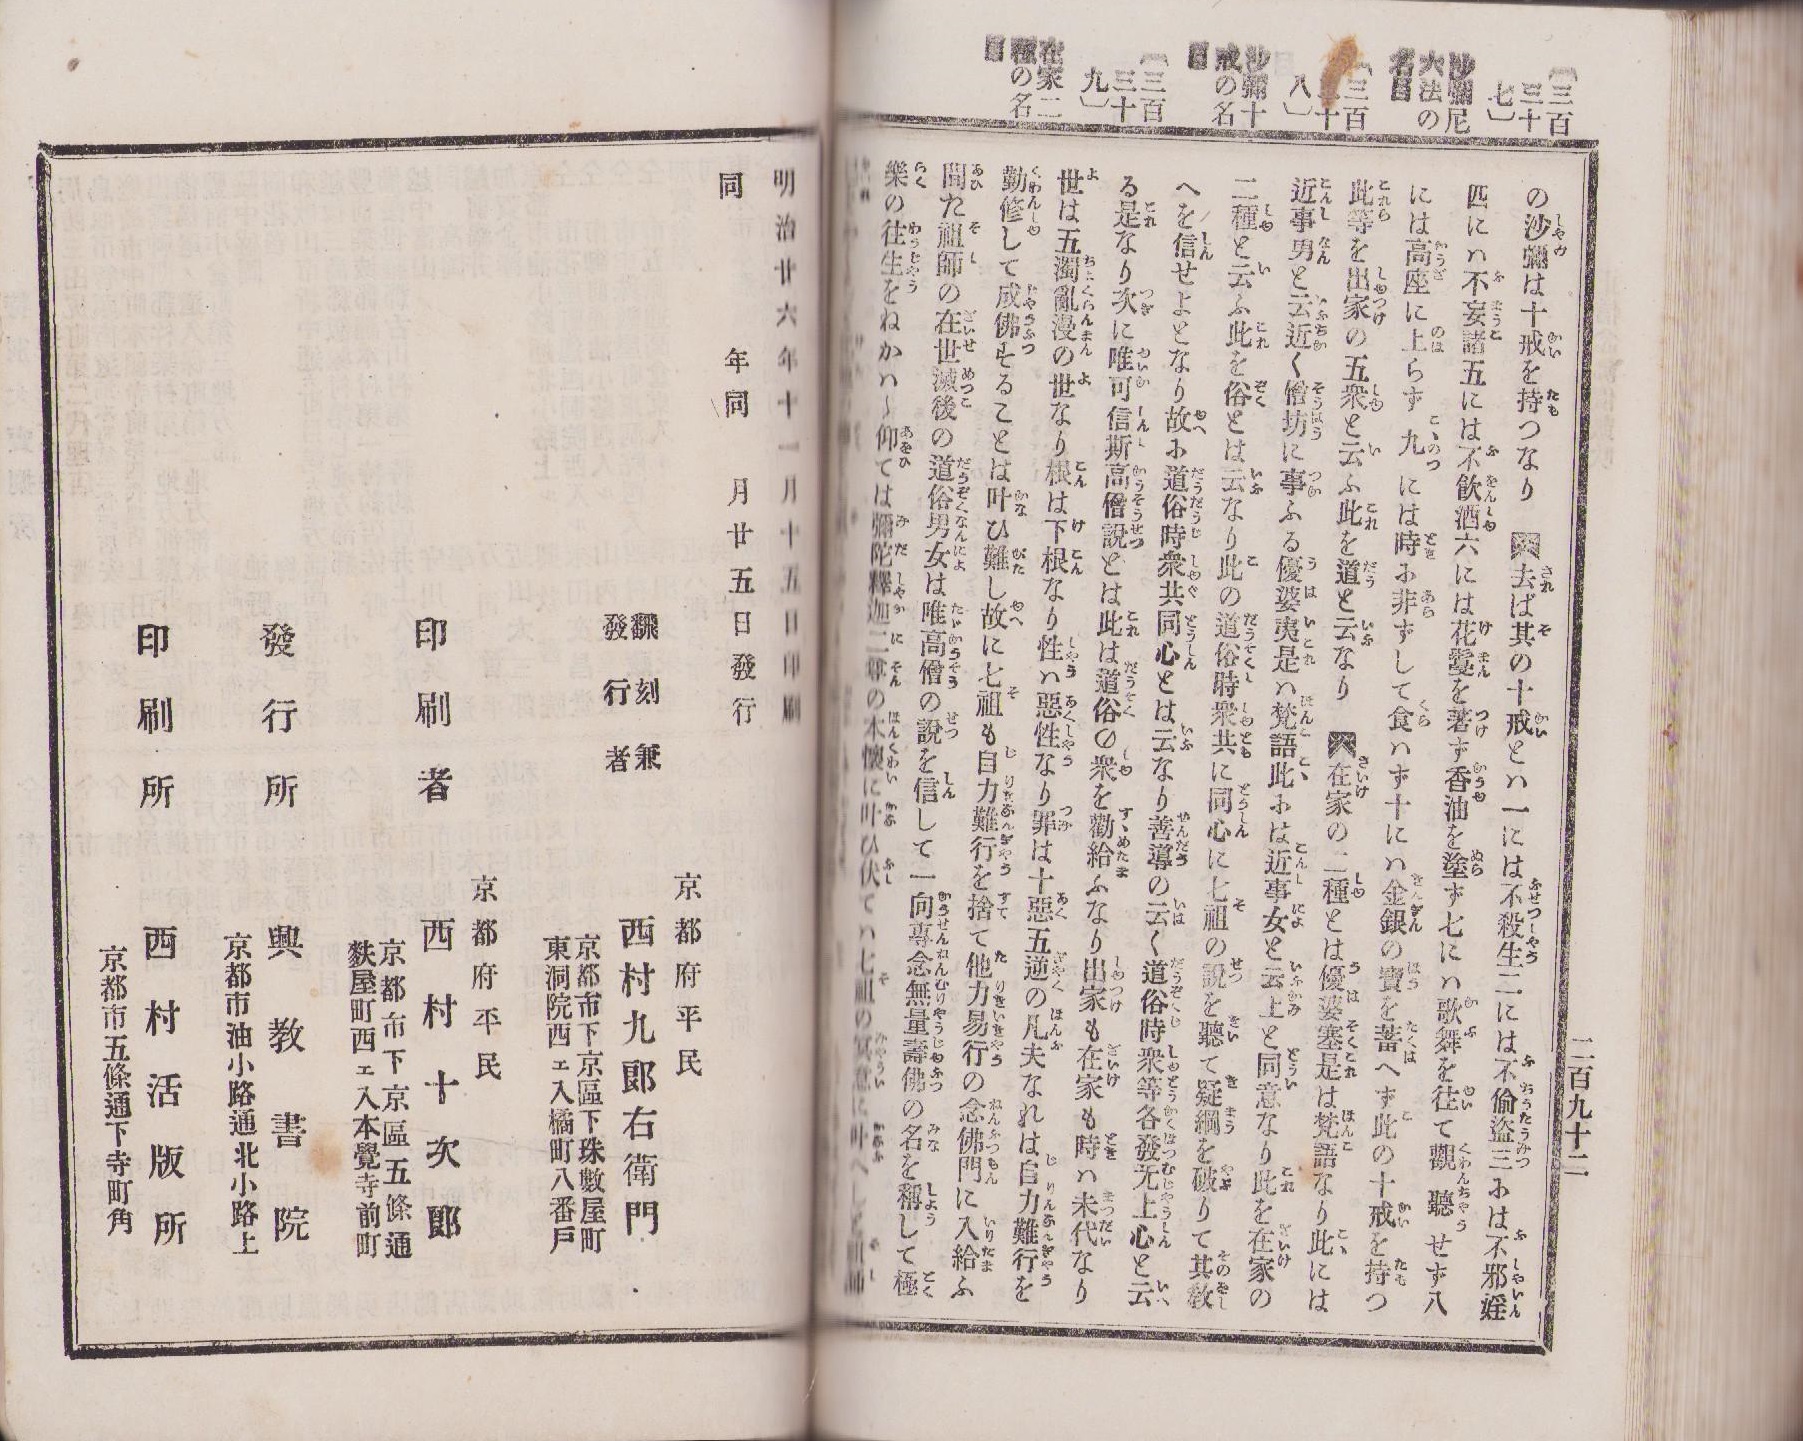 〔三百
三十
七〕
沙彌尼
六法の
名目
〔三百
三十
八〕
沙彌十
戒の名
目
〔三百
三十
九〕
在家二
種の名
目
二百九十二
の沙彌は十戒を持つなり 去ば其の十戒とハ一には不殺生二には不偸盗三ホは不邪婬
四にハ不妄語五には不飮酒六には花鬘を著ず香油を塗ず七にハ歌舞を往て觀聽せず八
には高座に上らず九には時ホ非ずして食ハず十にハ金銀の寶を蓄へず此の十戒を持つ
此等を出家の五衆と云ふ此を道と云なり 在家の二種とは優婆塞是は梵語なり此には
近事男と云近く僧坊に事ふる優婆夷是ハ梵語此ホは近事女と云上と同意なり此を在家の
二種と云ふ此を俗とは云なり此の道俗時衆共に同心に七祖の説を聽て疑綱を破りて其敎
へを信せよとなり故ホ道俗時衆共同心とは云なり善導の云く道俗時衆等各發无上心と云
る是なり次に唯可信斯高僧説とは此は道俗の衆を勸給ふなり出家も在家も時ハ未代なり
世は五濁亂漫の世なり根は下根なり性ハ惡性なり罪は十惡五逆の凡夫なれは自力難行を
勤修して成佛することは叶ひ難し故に七祖も自力難行を捨て他力易行の念佛門に入給ふ
聞た祖師の在世滅後の道俗男女は唯高僧の説を信して一向專念無量壽佛の名を稱して極
樂の往生をねかハヽ仰ては彌陀釋迦二尊の本懷に叶ひ伏てハ七祖の冥意に叶へし
明治廿六年十一月十五日印刷
同 年同 月廿五日發行
京都府平民
飜刻兼
發行者
西村九郎右衛門
京都市下京區下珠數屋町
東洞院西ェ入橘町八番戸
京都府平民
印刷者 西村十次郎
京都市下京區五條通
麩屋町西ェ入本覺寺前町
發行所 興教書院
京都市油小路通北小路上
印刷所 西村活版所
京都市五條通下寺町角